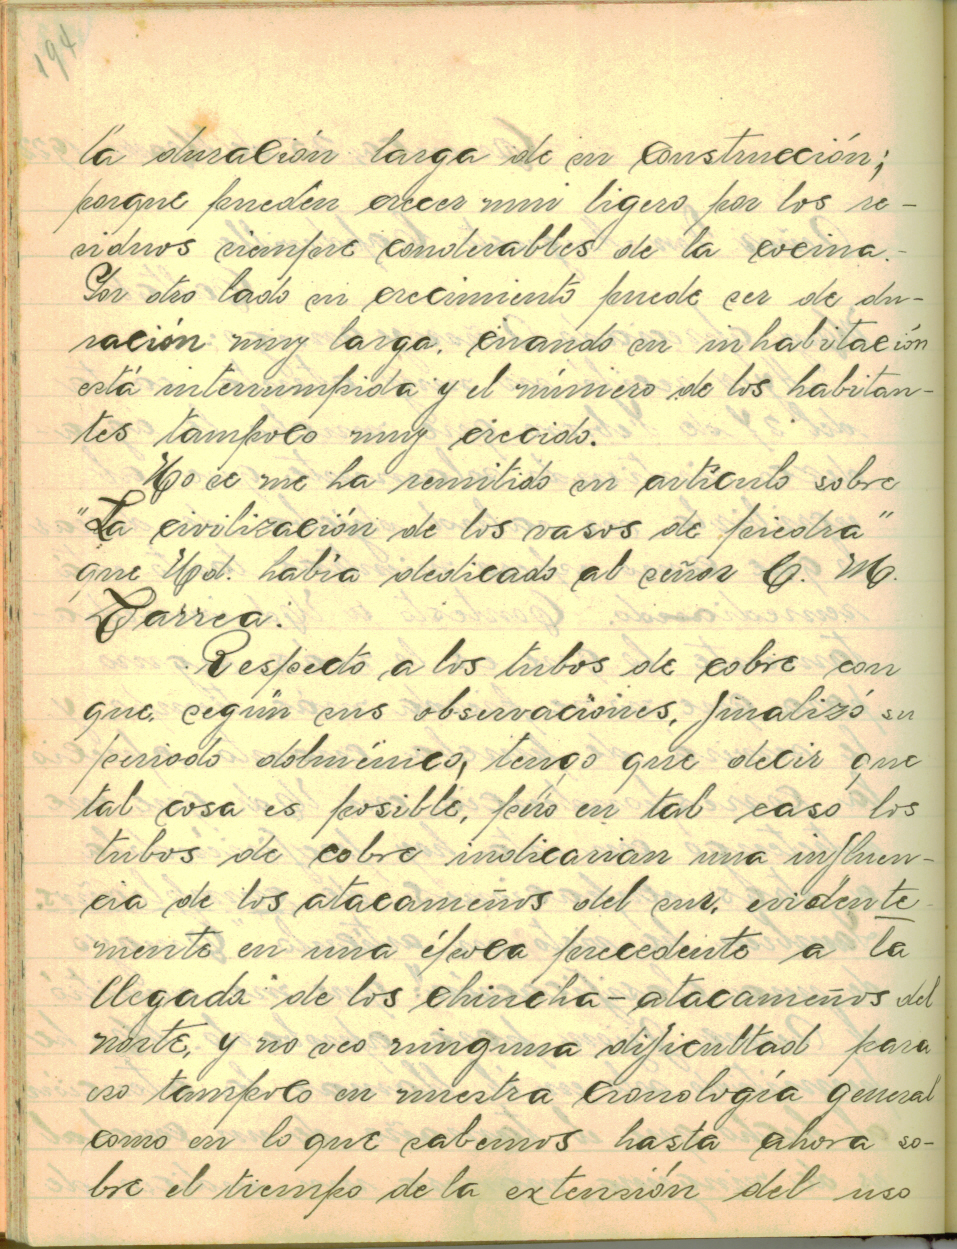 194
la duración larga de su construcción;
porque pueden crecer mui ligero por los re-
siduos siempre conderables de la cocina.-
Por otro lado su crecimiento puede ser de du-
ración muy larga. cuando su inhabitación
está interrumpida y el número de los habitan-
tes tampoco muy crecido.
No se me ha remitido su artículo sobre
"La civilización de los vasos de piedra"
que Ud. había dedicado al señor C. M.
Larrea.
Respecto a los tubos de cobre con
que, según sus observaciones, finalizó su
periodo dolménico, tengo que decir que
tal cosa es posible, pero en tal caso los
tubos de cobre indicarian una influen-
cia de los atacameños del sur, evidente-
mente en una época precedente a la
llegada de los chincha-atacameños del
norte, y no veo ninguna dificultad para
eso tampoco en nuestra cronología general
como en lo que sabemos hasta ahora so-
bre el tiempo de la extensión del uso